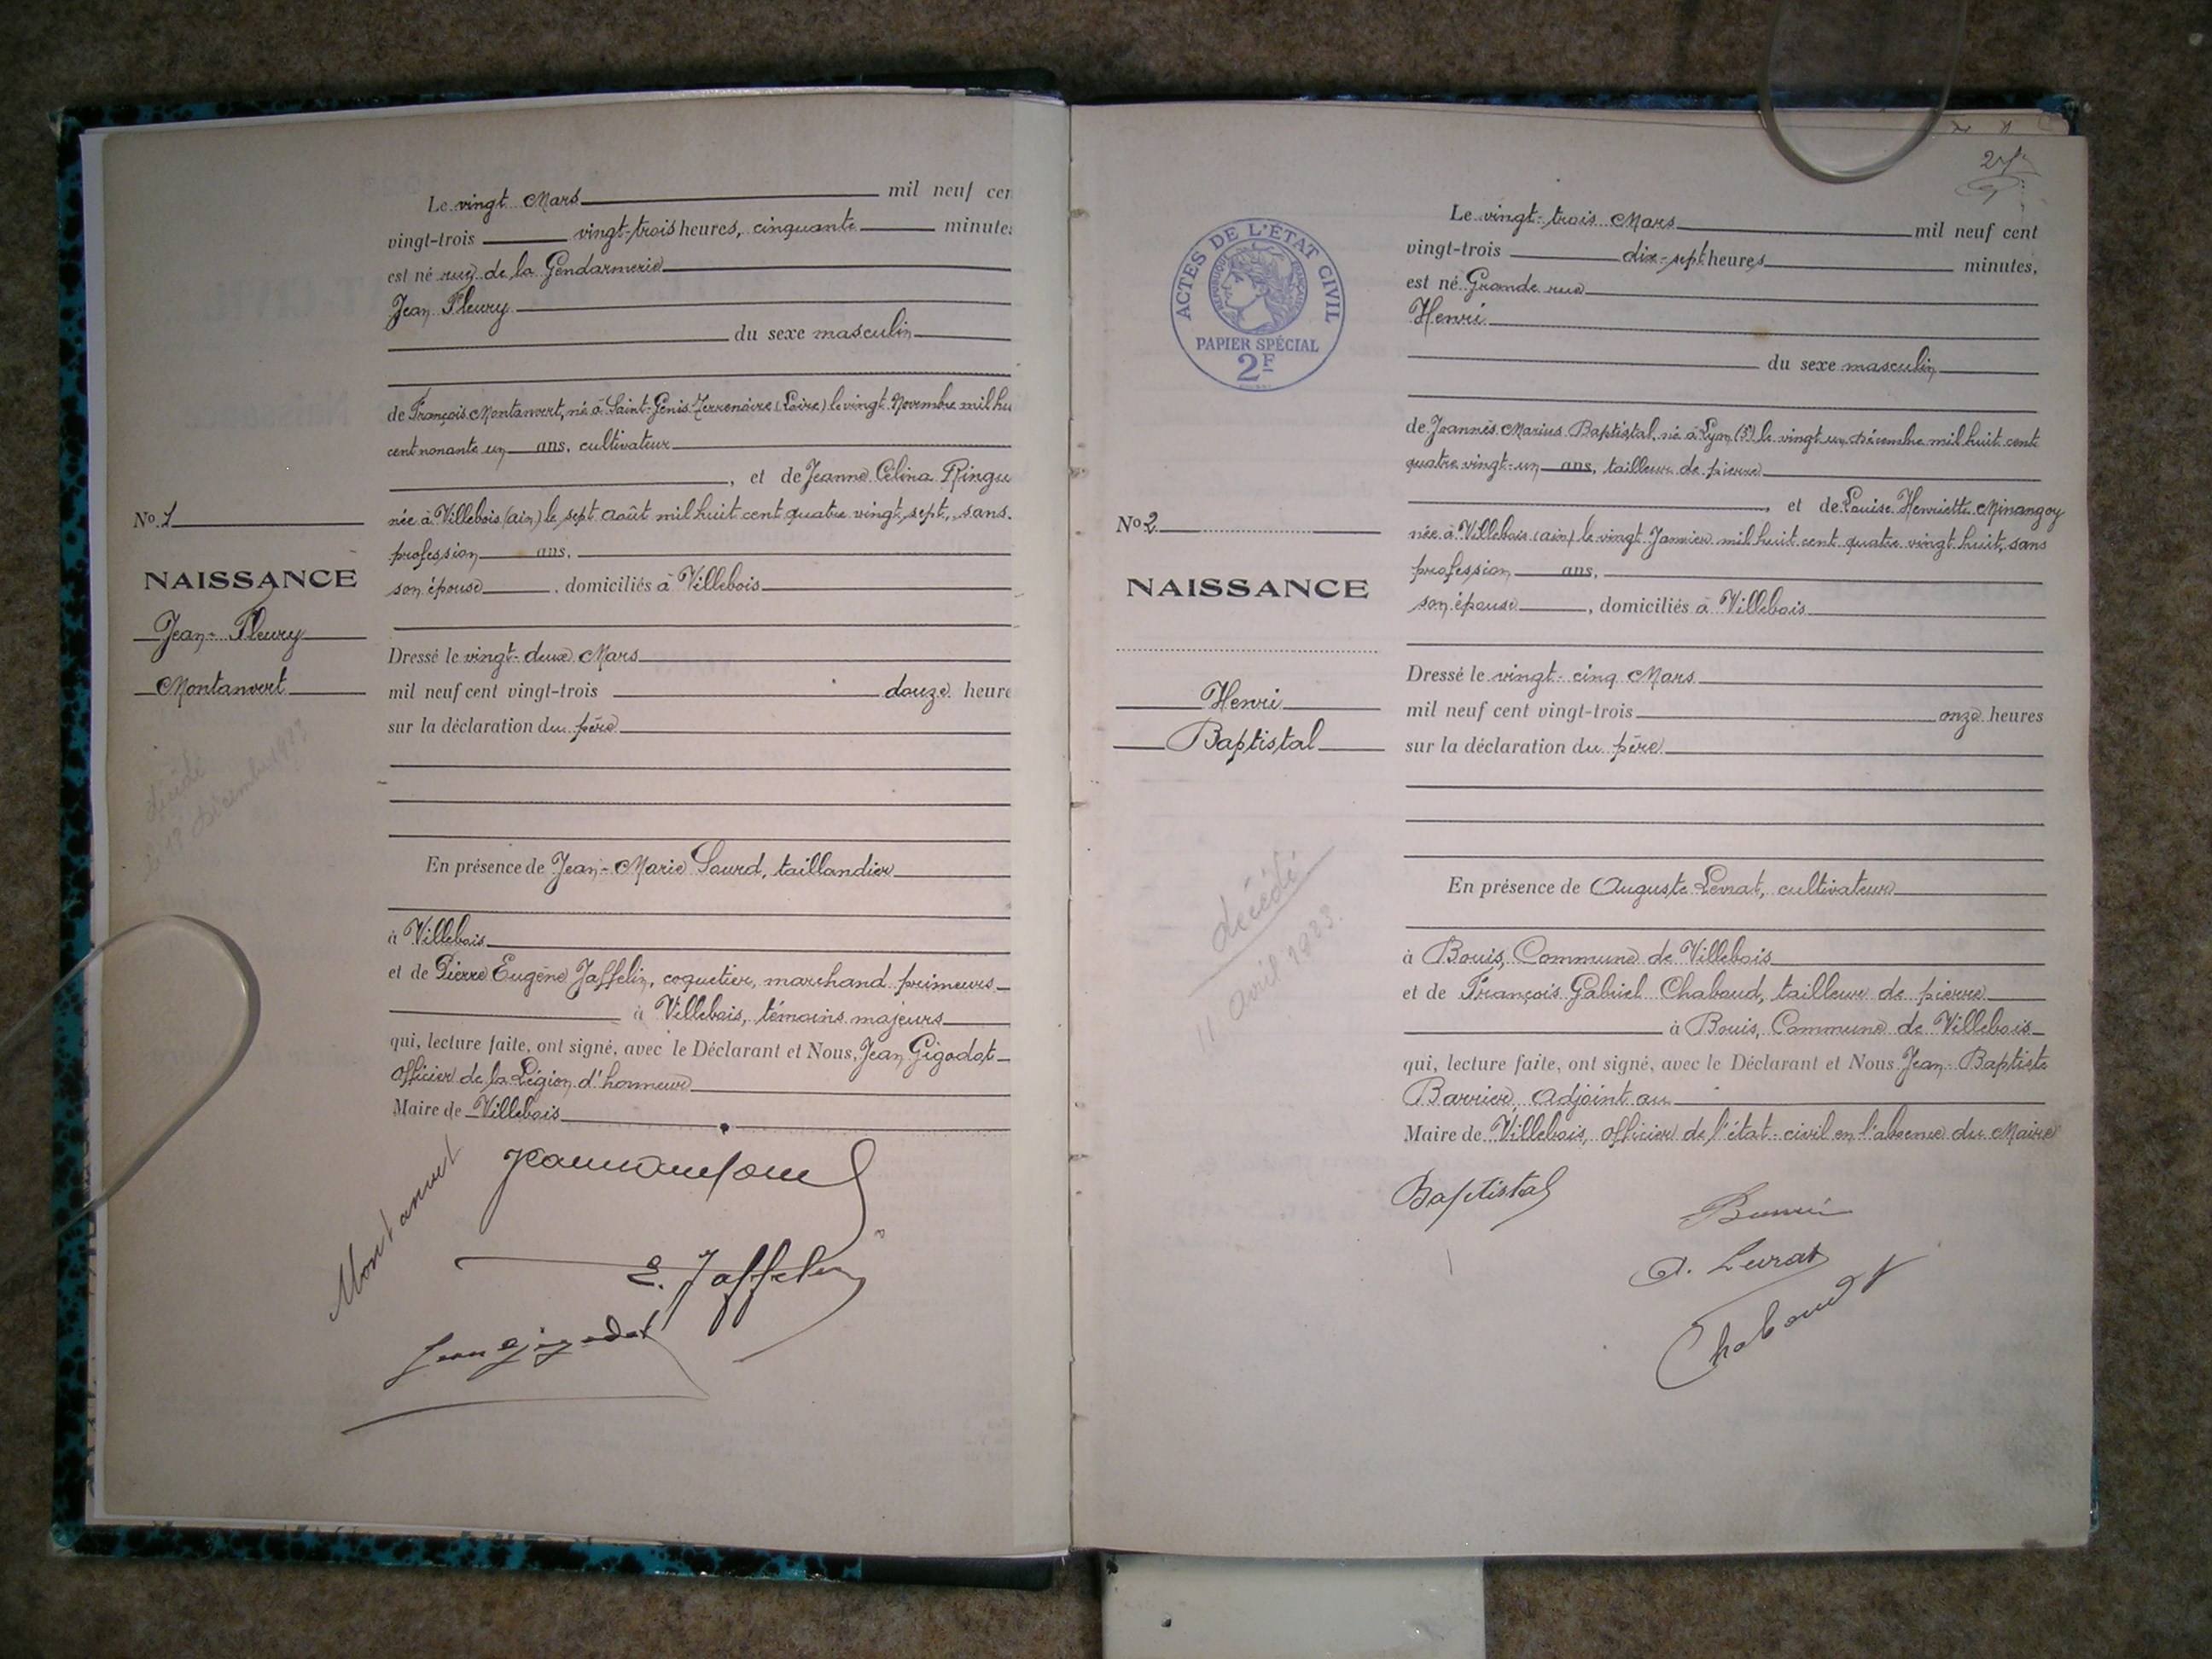 Le vingt Mars mil neuf cen
vingt-trois vingt-trois heures, cinquante minutes
est né rue de la Gendarmerie
Jean Fleury
du sexe masculin
de François Montanvert, né à Saint-Genis-Terrenoire (Loire) le vingt Novembre mil hu
cent nonante un ans, cultivateur
, et de Jeanne Célina Ringu
née à Villebois (ain) le sept août mil huit cent quatre vingt sept, sans
profession ans,
son épouse, domiciliés à Villebois
Dressé le vingt-deux Mars
mil neuf cent vingt-trois douze heure
sur la déclaration du père
En présence de Jean-Marie Sourd, taillandier
à Villebois
et de Pierre Eugène Jaffelin, coquetier, marchand primeurs
à Villebois, témoins majeurs
qui, lecture faite, ont signé, avec le Déclarant et Nous, Jean Gigodot
officier de la Légion d'honneur
Maire de Villebois
Montanvert
E. Jaffelin
Jean Gigodot
No 1
NAISSANCE
Jean-Fleury
Montanvert
décédé
décembre
27
ACTES DE L'ÉTAT CIVIL
RÉPUBLIQUE FRANÇAISE
PAPIER SPÉCIAL
2F
No 2
NAISSANCE
Henri
Baptistal
décédé
11 avril 1923.
Le vingt-trois Mars mil neuf cent
vingt-trois dix-sept heures minutes,
est né Grande rue
Henri
du sexe masculin
de Joannès Marius Baptistal, né à Lyon (5e) le vingt un Décembre mil huit cent
quatre vingt-un ans, tailleur de pierre
, et de Louise Henriette Minangoy
née à Villebois (ain) le vingt Janvier mil huit cent quatre vingt huit, sans
profession ans,
son épouse, domiciliés à Villebois
Dressé le vingt-cinq Mars
mil neuf cent vingt-trois onze heures
sur la déclaration du père
En présence de Auguste Levrat, cultivateur
à Bouis, Commune de Villebois
et de François Gabriel Chabaud, tailleur de pierre
à Bouis, Commune de Villebois
qui, lecture faite, ont signé, avec le Déclarant et Nous Jean-Baptiste
Barrier, adjoint au
Maire de Villebois, officier de l'état-civil en l'absence du Maire
Baptistal
Barrier
A. Levrat
Chabaud